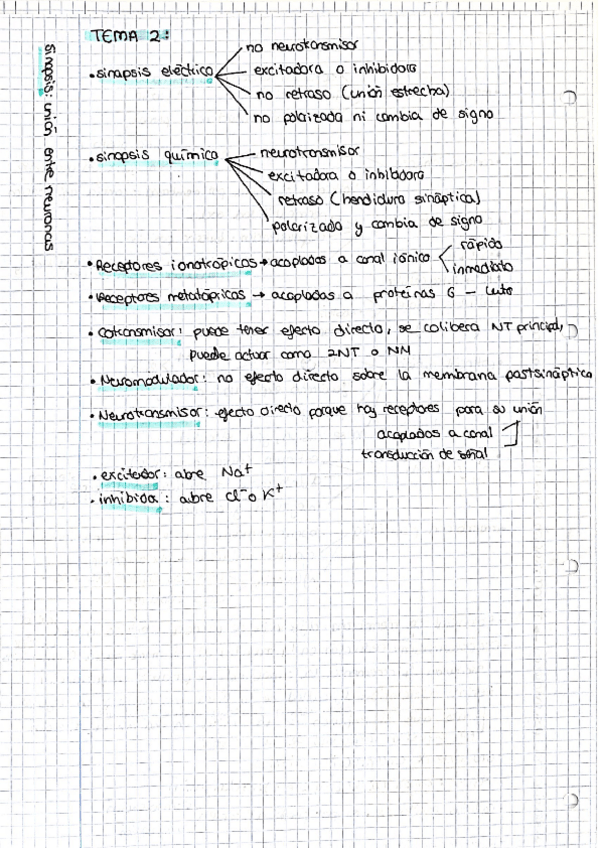 TEMA 2:
sinapsis: unión entre neuronas
• sinapsis eléctrica
no neurotransmisor
excitadora o inhibidora
no retraso (unión estrecha)
no polarizada ni cambia de signo
• sinapsis química
neurotransmisor
excitadora o inhibidora
retraso (hendidura sináptica)
polarizada y cambia de signo
• Receptores ionotrópicos → acoplados a canal iónico
rápido
inmediato
• Receptores metatópicos → acoplados a proteínas G – lento
• Cotransmisor: puede tener efecto directo, se colibera NT principal,
puede actuar como 2NT o NM
• Neuromodulador: no efecto directo sobre la membrana postsináptica
• Neurotransmisor: efecto directo porque hay receptores para su unión
acoplados a canal
transducción de señal
• excitador: abre Na+
• inhibidor: abre Cl- o K+